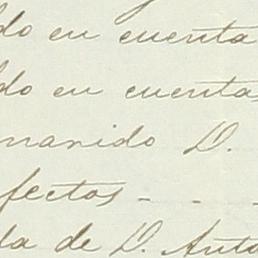 do en cuenta
do en cuenta
marido D.
fectos - - -
da de D. Anto